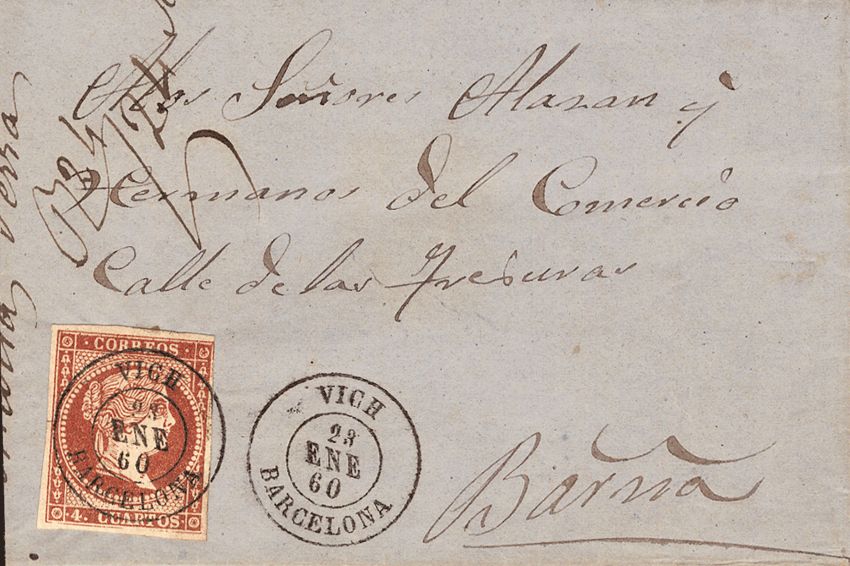 A los Señores Alazan y
Hermanos del Comercio
Calle de las Freixuras
Barña
CORREOS
4. CUARTOS
VICH
23
ENE
60
BARCELONA
VICH
23
ENE
60
BARCELONA